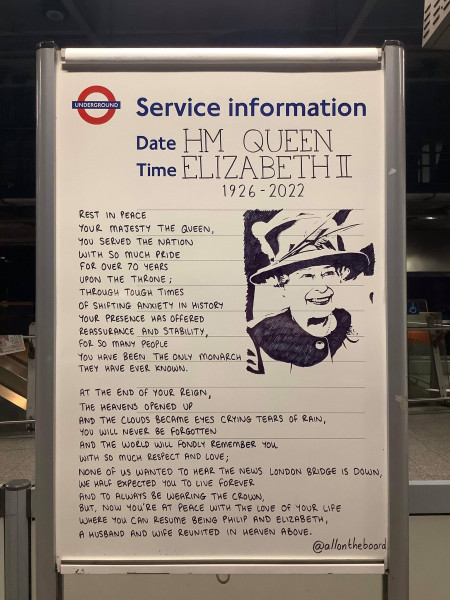 UNDERGROUND
Service information
Date HM QUEEN
Time ELIZABETH II
1926-2022
REST IN PEACE
YOUR MAJESTY THE QUEEN,
YOU SERVED THE NATION
WITH SO MUCH PRIDE
FOR OVER 70 YEARS
UPON THE THRONE;
THROUGH TOUGH TIMES
OF SHIFTING ANXIETY IN HISTORY
YOUR PRESENCE HAS OFFERED
REASSURANCE AND STABILITY,
FOR SO MANY PEOPLE
YOU HAVE BEEN THE ONLY MONARCH
THEY HAVE EVER KNOWN.
AT THE END OF YOUR REIGN,
THE HEAVENS OPENED UP
AND THE CLOUDS BECAME EYES CRYING TEARS OF RAIN,
YOU WILL NEVER BE FORGOTTEN
AND THE WORLD WILL FONDLY REMEMBER YOU
WITH SO MUCH RESPECT AND LOVE;
NONE OF US WANTED TO HEAR THE NEWS LONDON BRIDGE IS DOWN,
WE HALF EXPECTED YOU TO LIVE FOREVER
AND TO ALWAYS BE WEARING THE CROWN,
BUT, NOW YOU'RE AT PEACE WITH THE LOVE OF YOUR LIFE
WHERE YOU CAN RESUME BEING PHILIP AND ELIZABETH,
A HUSBAND AND WIFE REUNITED IN HEAVEN ABOVE.
@allontheboard